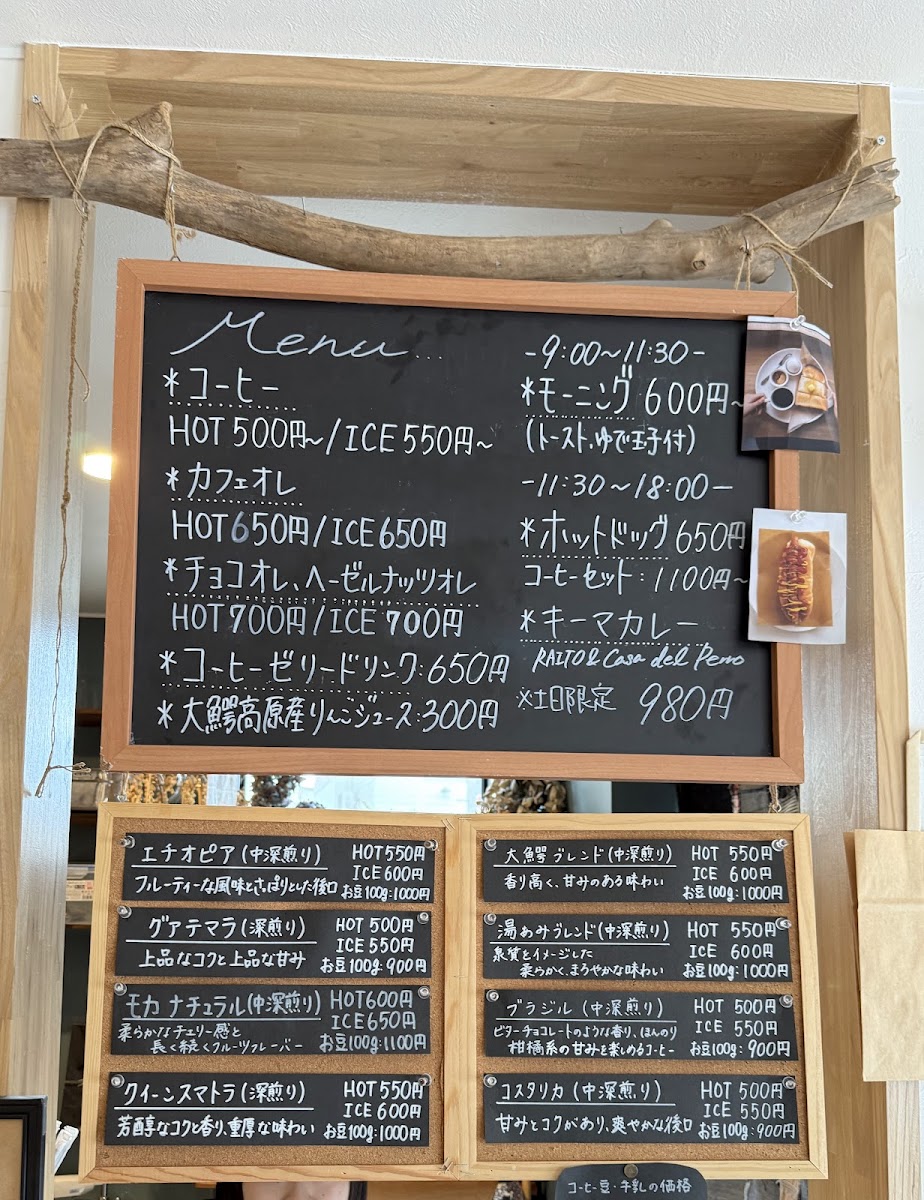 Menu....
*コーヒー
HOT 500円~/ICE 550円~
*カフェオレ
HOT 650円/ICE 650円
*チョコオレ、ヘーゼルナッツオレ
HOT 700円/ICE 700円
*コーヒーゼリードリンク:650円
*大鰐高原産りんごジュース:300円
-9:00~11:30-
*モーニング 600円~
(トースト、ゆで玉子付)
-11:30~18:00-
*ホットドッグ 650円
コーヒーセット:1100円~
*キーマカレー
RAITO & Casa del Perro
※土日限定 980円
エチオピア(中深煎り) HOT 550円
ICE 600円
フルーティーな風味とさっぱりとした後口 お豆100g:1000円
グァテマラ(深煎り) HOT 500円
ICE 550円
上品なコクと上品な甘み お豆100g:900円
モカ ナチュラル(中深煎り) HOT 600円
ICE 650円
柔らかなチェリー感と
長く続くフルーツフレーバー お豆100g:1100円
クイーンスマトラ(深煎り) HOT 550円
ICE 600円
芳醇なコクと香り、重厚な味わい お豆100g:1000円
大鰐ブレンド(中深煎り) HOT 550円
ICE 600円
香り高く、甘みのある味わい お豆100g:1000円
湯あみブレンド(中深煎り) HOT 550円
ICE 600円
泉質をイメージした
柔らかく、まろやかな味わい お豆100g:1000円
ブラジル(中深煎り) HOT 500円
ICE 550円
ビターチョコレートのような香り、ほんのり
柑橘系の甘みを楽しめるコーヒー お豆100g:900円
コスタリカ(中深煎り) HOT 500円
ICE 550円
甘みとコクがあり、爽やかな後口 お豆100g:900円
コーヒー豆・牛乳の価格